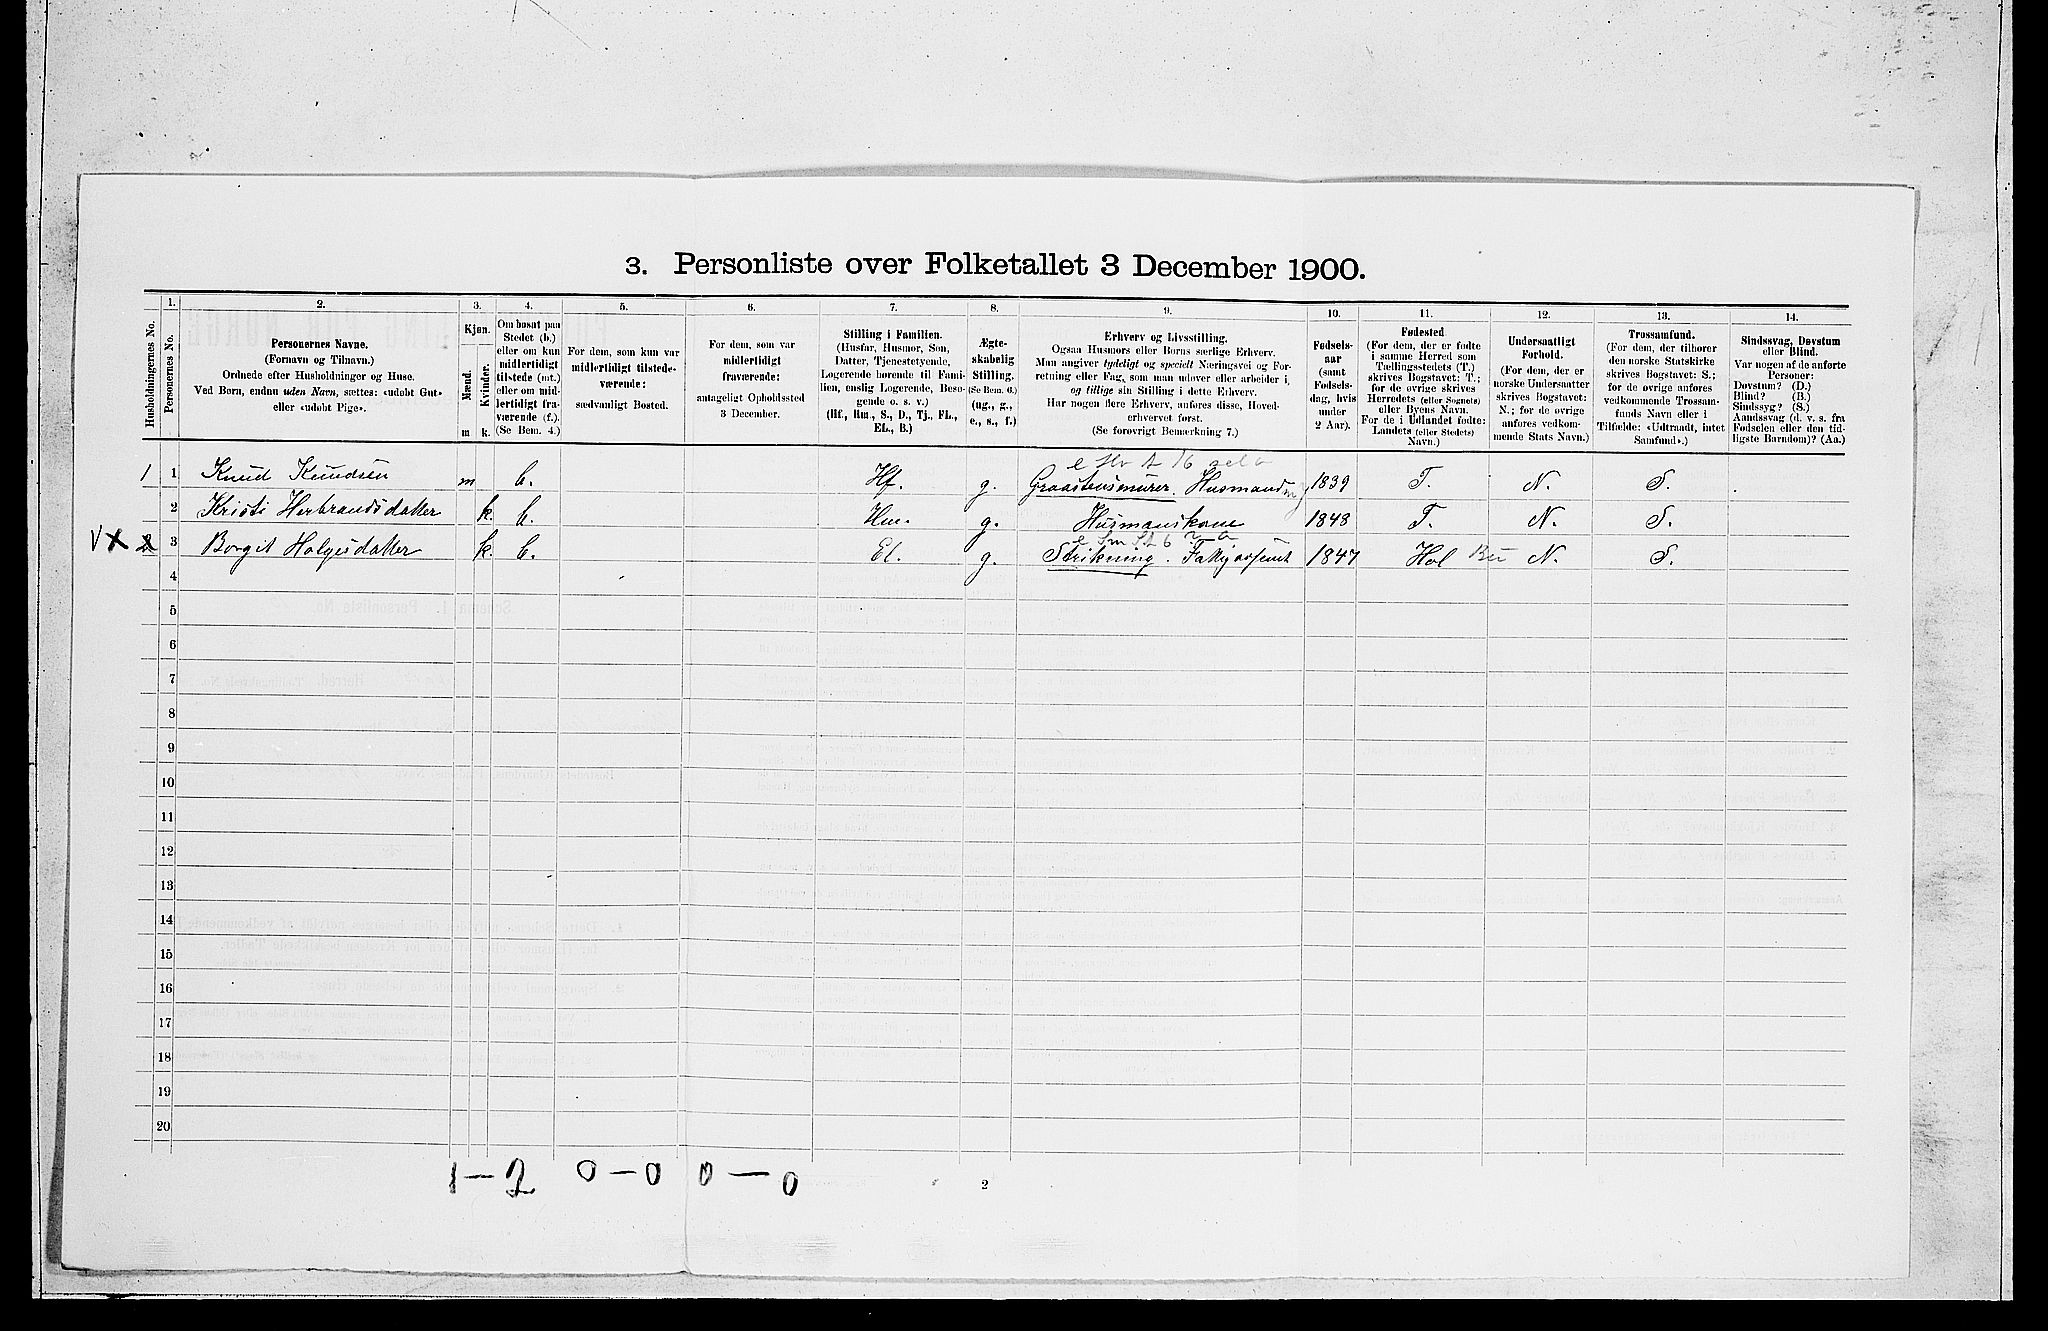 3. Personliste over Folketallet 3 December 1900.
Husholdningernes No.
1.
Personernes No.
2.
Personernes Navne.
(Fornavn og Tilnavn.)
Ordnede efter Husholdninger og Huse.
Ved Børn, endnu uden Navn, sættes: «udøbt Gut»
eller «udøbt Pige».
3.
Kjøn.
Mænd.
Kvinder.
m k.
4.
Om bosat paa
Stedet (b.)
eller om kun
midlertidigt
tilstede (mt.)
eller om mid-
lertidigt fra-
værende (f.).
(Se Bem. 4.)
5.
For dem, som kun var
midlertidigt tilstede-
værende:
sædvanligt Bosted.
6.
For dem, som var
midlertidigt
fraværende:
antageligt Opholdssted
3 December.
7.
Stilling i Familien.
(Husfar, Husmor, Søn,
Datter, Tjenestetyende,
Logerende hørende til Fami-
lien, enslig Logerende, Besø-
gende o. s. v.)
(Hf., Hm., S., D., Tj., FL.,
EL., B.)
8.
Ægte-
skabelig
Stilling.
(Se Bem. 6.)
(ug., g.,
e., s., f.)
9.
Erhverv og Livsstilling.
Ogsaa Husmors eller Børns særlige Erhverv.
Man angiver tydeligt og specielt Næringsvei og For-
retning eller Fag, som man udøver eller arbeider i,
og tillige sin Stilling i dette Erhverv.
Har nogen flere Erhverv, anføres disse, Hoved-
erhvervet først.
(Se forøvrigt Bemærkning 7.)
10.
Fødsels-
aar
(samt
Fødsels-
dag, hvis
under
2 Aar).
11.
Fødested.
(For dem, der er fødte
i samme Herred som
Tællingsstedets (T.)
skrives Bogstavet: T.;
for de øvrige skrives
Herredets (eller Sognets)
eller Byens Navn.
For de i Udlandet fødte:
Landets (eller Stedets)
Navn.)
12.
Undersaatligt
Forhold.
(For dem, der er
norske Undersaatter
skrives Bogstavet:
N.; for de øvrige
anføres vedkom-
mende Stats Navn.)
13.
Trossamfund.
(For dem, der tilhører
den norske Statskirke
skrives Bogstavet: S.;
for de øvrige anføres
vedkommende Trossam-
funds Navn eller i
Tilfælde: «Udtraadt, intet
Samfund».)
14.
Sindssvag, Døvstum
eller Blind.
Var nogen af de anførte
Personer:
Døvstum? (D.)
Blind? (B.)
Sindssyg? (S.)
Aandssvag (d. v. s. fra
Fødselen eller den tid-
ligste Barndom)? (Aa.)
1 1 Knud Knudsen m b. Hf. g. Graastensmurer. Husmand 1839 T. N. S.
2 Kristi Herbrandsdatter k. b. Hm. g. Husmanskone 1848 T. N. S.
2 3 Borgit Holgesdatter k. b. El. g. Strikning. 1847 Hol N. S.
4
5
6
7
8
9
10
11
12
13
14
15
16
17
18
19
20
1 – 2 0 – 0 0 – 0
2